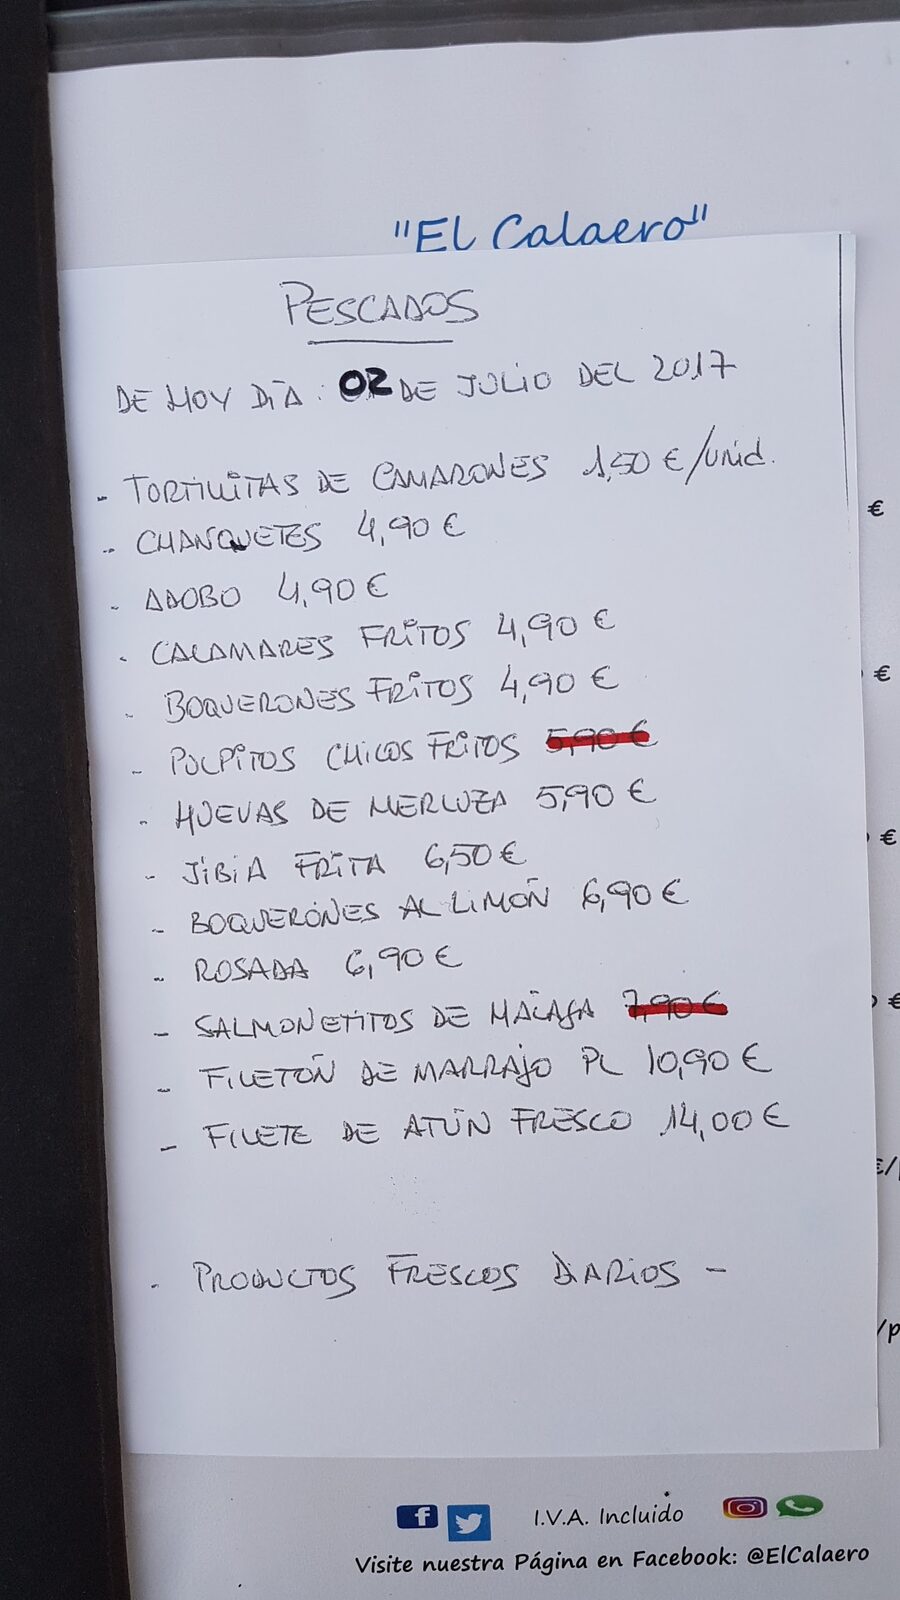 "El Calaero"
PESCADOS
DE HOY DÍA: 02 DE JULIO DEL 2017
- TORTILLITAS DE CAMARONES 1,50 €/unid.
- CHANQUETES 4,90 €
- ADOBO 4,90 €
- CALAMARES FRITOS 4,90 €
- BOQUERONES FRITOS 4,90 €
- PULPITOS CHICOS FRITOS 5,90 €
- HUEVAS DE MERLUZA 5,90 €
- JIBIA FRITA 6,50 €
- BOQUERONES AL LIMÓN 6,90 €
- ROSADA 6,90 €
- SALMONETITOS DE MÁLAGA 7,90 €
- FILETÓN DE MARRAJO PL 10,90 €
- FILETE DE ATÚN FRESCO 14,00 €
- PRODUCTOS FRESCOS DIARIOS -
€
€
€
€
€/p
/p
I.V.A. Incluido
Visite nuestra Página en Facebook: @ElCalaero